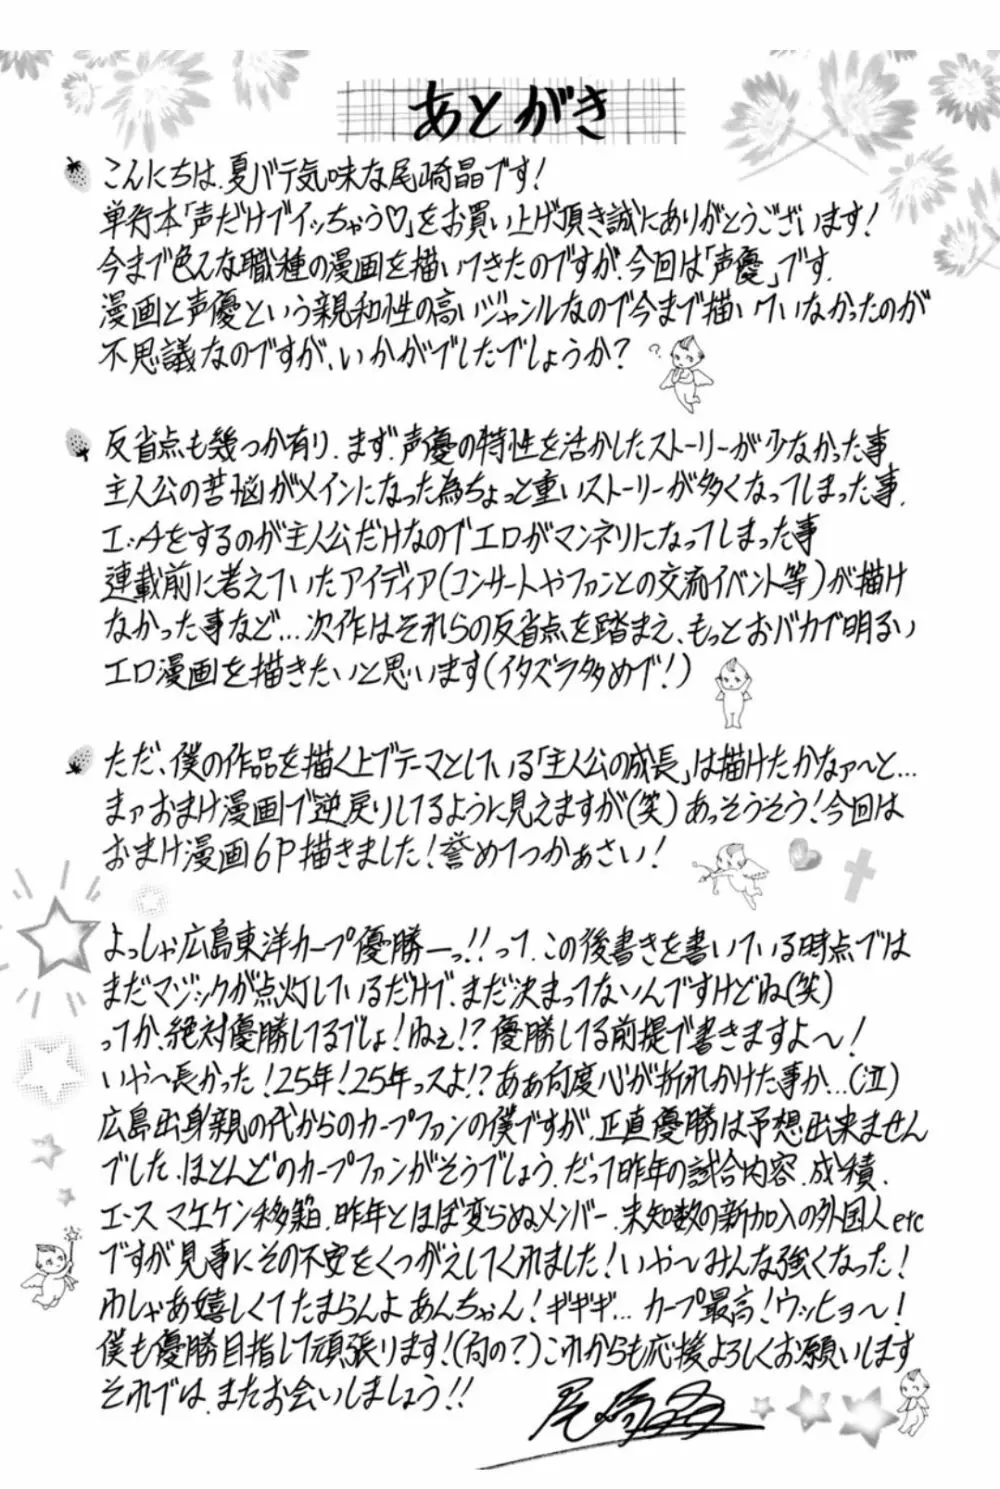 あとがき
こんにちは、夏バテ気味な尾崎晶です!
単行本「声だけでイッちゃう♡」をお買い上げ頂き誠にありがとうございます!
今まで色んな職種の漫画を描いてきたのですが、今回は「声優」です。
漫画と声優という親和性の高いジャンルなので今まで描いていなかったのが
不思議なのですが、いかがでしたでしょうか?
?
反省点も幾つか有り、まず声優の特性を活かしたストーリーが少なかった事
主人公の苦悩がメインになった為ちょっと重いストーリーが多くなってしまった事、
エッチをするのが主人公だけなのでエロがマンネリになってしまった事
連載前に考えていたアイディア(コンサートやファンとの交流イベント等)が描け
なかった事など…次作はそれらの反省点を踏まえ、もっとおバカで明るい
エロ漫画を描きたいと思います(イタズラ多めで!)
ただ、僕の作品を描く上でテーマとしている「主人公の成長」は描けたかなァ〜と…
まァおまけ漫画で逆戻りしてるように見えますが(笑)あっそうそう!今回は
おまけ漫画6P描きました!誉めてつかぁさい!
よっしゃ広島東洋カープ優勝ーっ!!って、この後書きを書いている時点では
まだマジックが点灯しているだけで、まだ決まってないんですけどね(笑)
ってか、絶対優勝してるでしょ!ねぇ!?優勝してる前提で書きますよ〜!
いや〜長かった!25年!25年っスよ!?あぁ何度心が折れかけた事か…(泣)
広島出身親の代からのカープファンの僕ですが、正直優勝は予想出来ません
でした、ほとんどのカープファンがそうでしょう、だって昨年の試合内容、成積、
エース マエケン移籍、昨年とほぼ変らぬメンバー、未知数の新加入の外国人etc
ですが見事にその不安をくつがえしてくれました!いや〜みんな強くなった!
わしゃあ嬉しくてたまらんよあんちゃん!ギギギ…カープ最高!ウッヒョ〜!
僕も優勝目指して頑張ります!(何の?)これからも応援よろしくお願いします
それでは、またお会いしましょう!!
尾崎晶